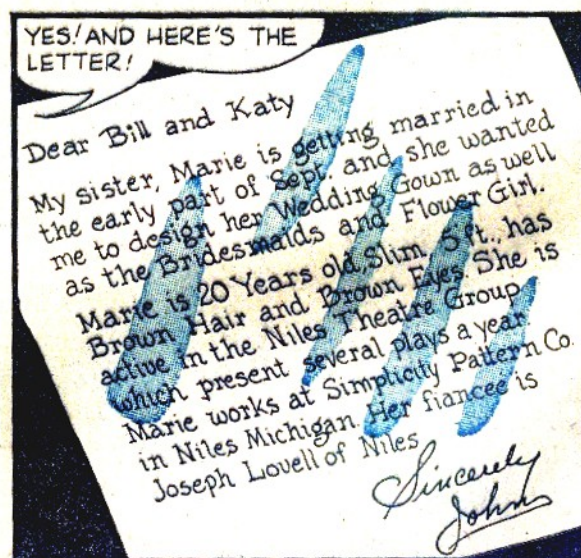 YES! AND HERE'S THE
LETTER!
Dear Bill and Katy
My sister, Marie is getting married in
the early part of Sept. and she wanted
me to design her Wedding Gown as well
as the Bridesmaids and Flower Girl.
Marie is 20 Years old, Slim 5 ft., has
Brown Hair and Brown Eyes. She is
active in the Niles Theatre Group
which present several plays a year
Marie works at Simplicity Pattern Co.
in Niles Michigan. Her fiancée is
Joseph Lovell of Niles
Sincerely
John